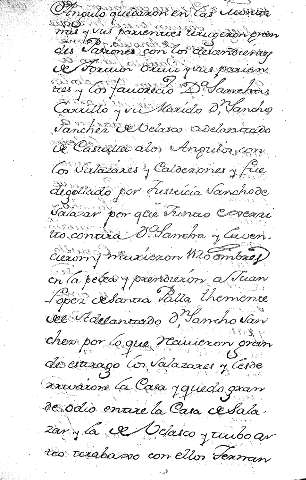 Angulo quisieron en las Monta
mas y sus parientes tuvieron gran
des Pasiones con los de
de Tormun Ortiz y sus parien
tes y los favorecio D.ª Sancha
Carrillo y su Marido D.n Sancho
Sanchez de Velasco adelantado
de Castilla a los Angulos, con
los Salazares y Calderones y fue
degollado por Justicia Sancho de
Salazar por que Junto
contra D.ª Sancha y la ven
cieron y murieron hombres
en la pelea y prendieron a Juan
Lopez de Santa Palla theniente
del Adelantado D.n Sancho San
chez por lo que tuvieron gran
de estrago los Salazares y les de
rrivaron la Casa y quedo gran
de odio entre la Casa de Sala
zar y la de Velasco y tubo
trabaxo con ellos Fernan